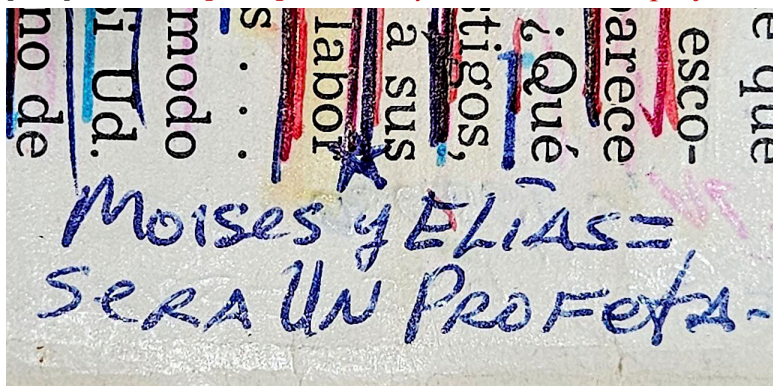 e que
esco-
arece
¿Qué
tigos,
a sus
labor
s . . .
modo
si Ud.
no de
Moises y ELíAS=
SeRA UN PROFetA-